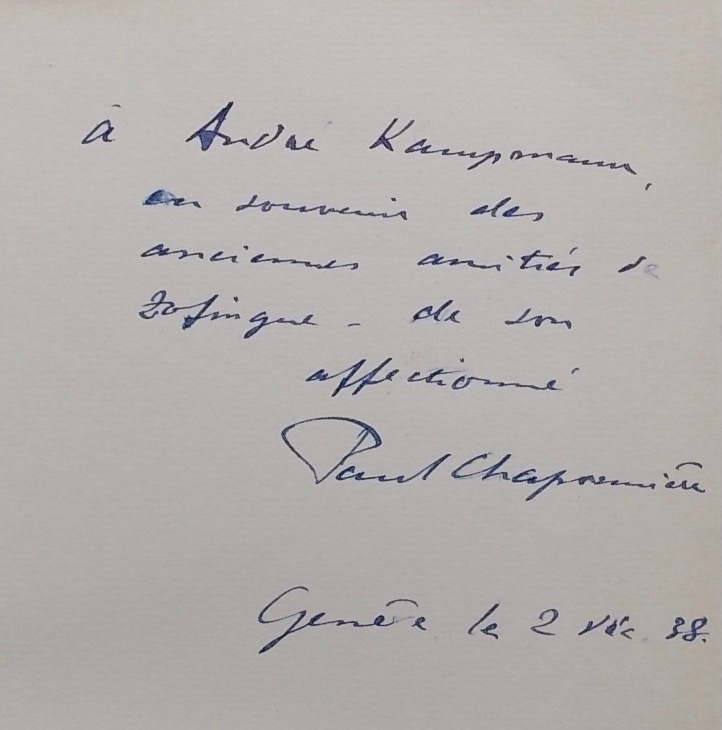 à André Kampmann,
en souvenir des
anciennes amitiés de
Zofingue - de son
affectionné
Paul Chaponnière
Genève le 2 déc. 38.